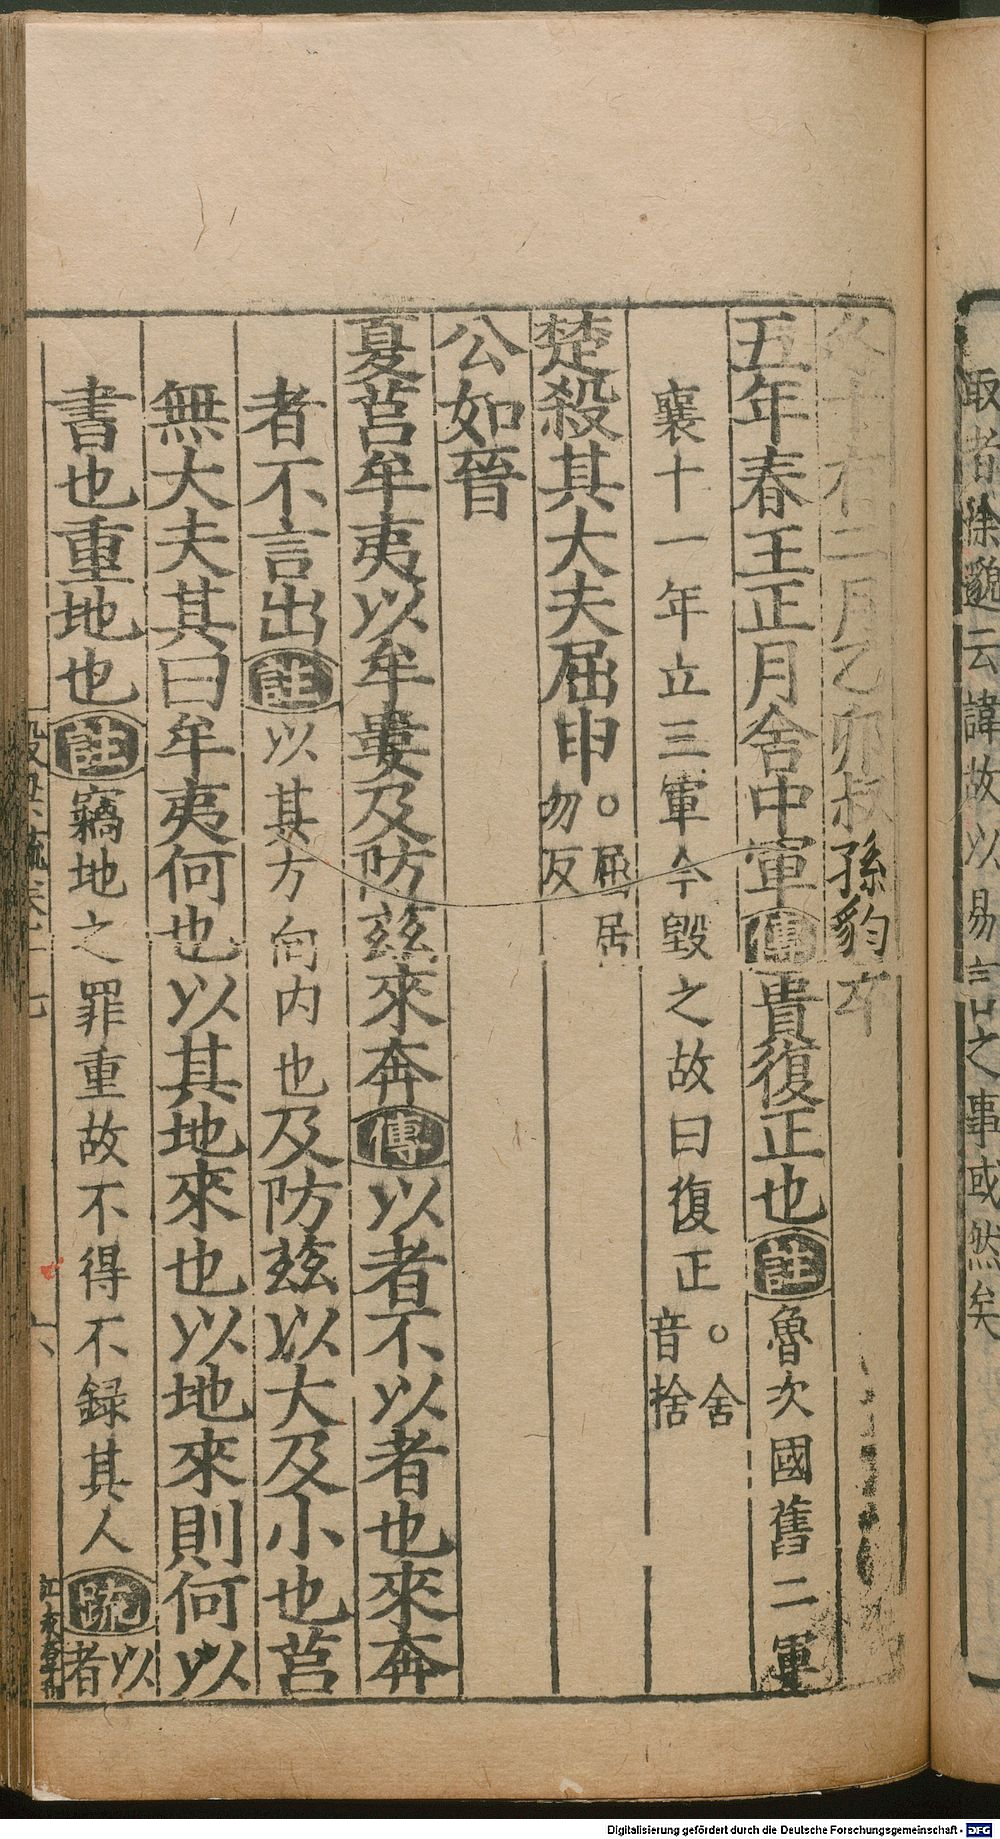 取者除䝞云諱故以易言之事或然矣
冬十有二月乙卯叔孫豹卒
五年春王正月舍中軍傳貴復正也註魯次國舊二軍
襄十一年立三軍今毀之故曰復正。舍音捨
楚殺其大夫屈申。屈居勿反
公如晉
夏莒牟夷以牟婁及防茲來奔傳以者不以者也來奔
者不言出註以其方向内也及防茲以大及小也莒
無大夫其曰牟夷何也以其地來也以地來則何以
書也重地也註竊地之罪重故不得不録其人疏以者
六
Digitalisierung gefördert durch die Deutsche Forschungsgemeinschaft - DFG